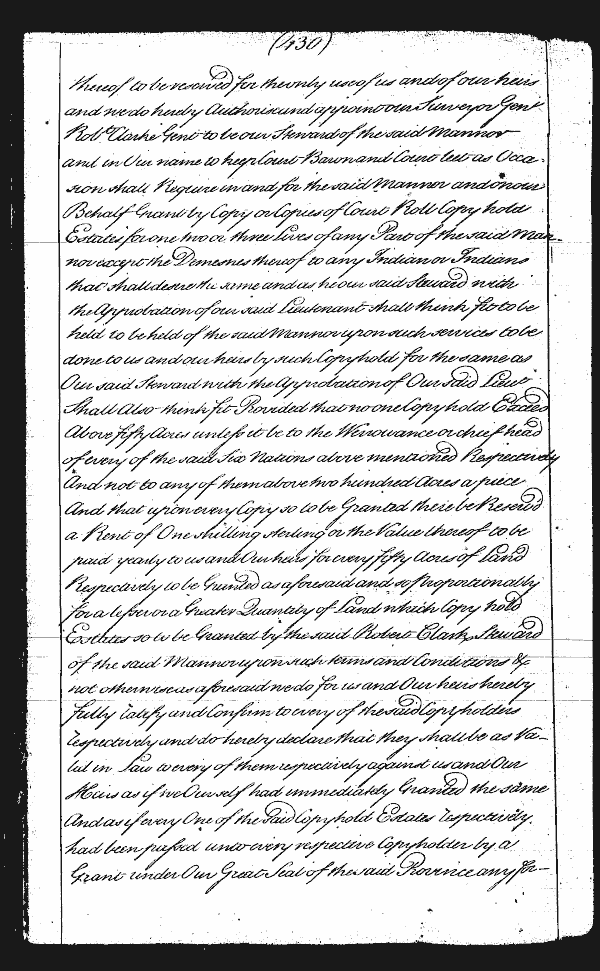 (430)
thereof to be reserved for the only use of us and of our heirs
and we do hereby Authorise and appoint our Surveyor Genl
Robt Clarke Gent to be our Steward of the said Mannor
and in Our name to keep Court Baron and Court leet as Occa-
sion shall Require in and for the said Mannor and on our
Behalf Grant by Copy or Copies of Court Roll Copy hold
Estates for one two or three Lives of any Part of the said Man-
nor except the Demesnes thereof to any Indian or Indians
that shall desire the same and as he our said Steward with
the Approbation of our said Lieutenant shall think fit to be
held to be held of the said Mannor upon such services to be
done to us and our heirs by such Copyhold for the same as
Our said Steward with the Approbation of Our said Lieut
Shall Also think fit Provided that no one Copyhold Exceed
Above fifty Acres unless it be to the Wirrowance or chief head
of every of the said Six Nations above mentioned Respectively
And not to any of them above two hundred Acres a piece
And that upon every Copy so to be Granted there be Reserved
a Rent of One shilling sterling or the Value thereof to be
paid yearly to us and Our heirs for every fifty Acres of Land
Respectively to be Granted as aforesaid and so Proportionably
for a lesser or a Greater Quantity of Land which Copy hold
Estates so to be Granted by the said Robert Clark Steward
of the said Mannor upon such terms and Conditions &
not otherwise as aforesaid we do for us and Our heirs hereby
fully ratefy and Confirm to every of the said Copyholders
respectively and do hereby declare that they shall be as Va-
lid in Law to every of them respectively against us and Our
Heirs as if we Ourself had immediately Granted the same
And as if every One of the said Copyhold Estates respectively
had been passed unto every respective Copyholder by a
Grant under Our Great Seal of the said Province any for-